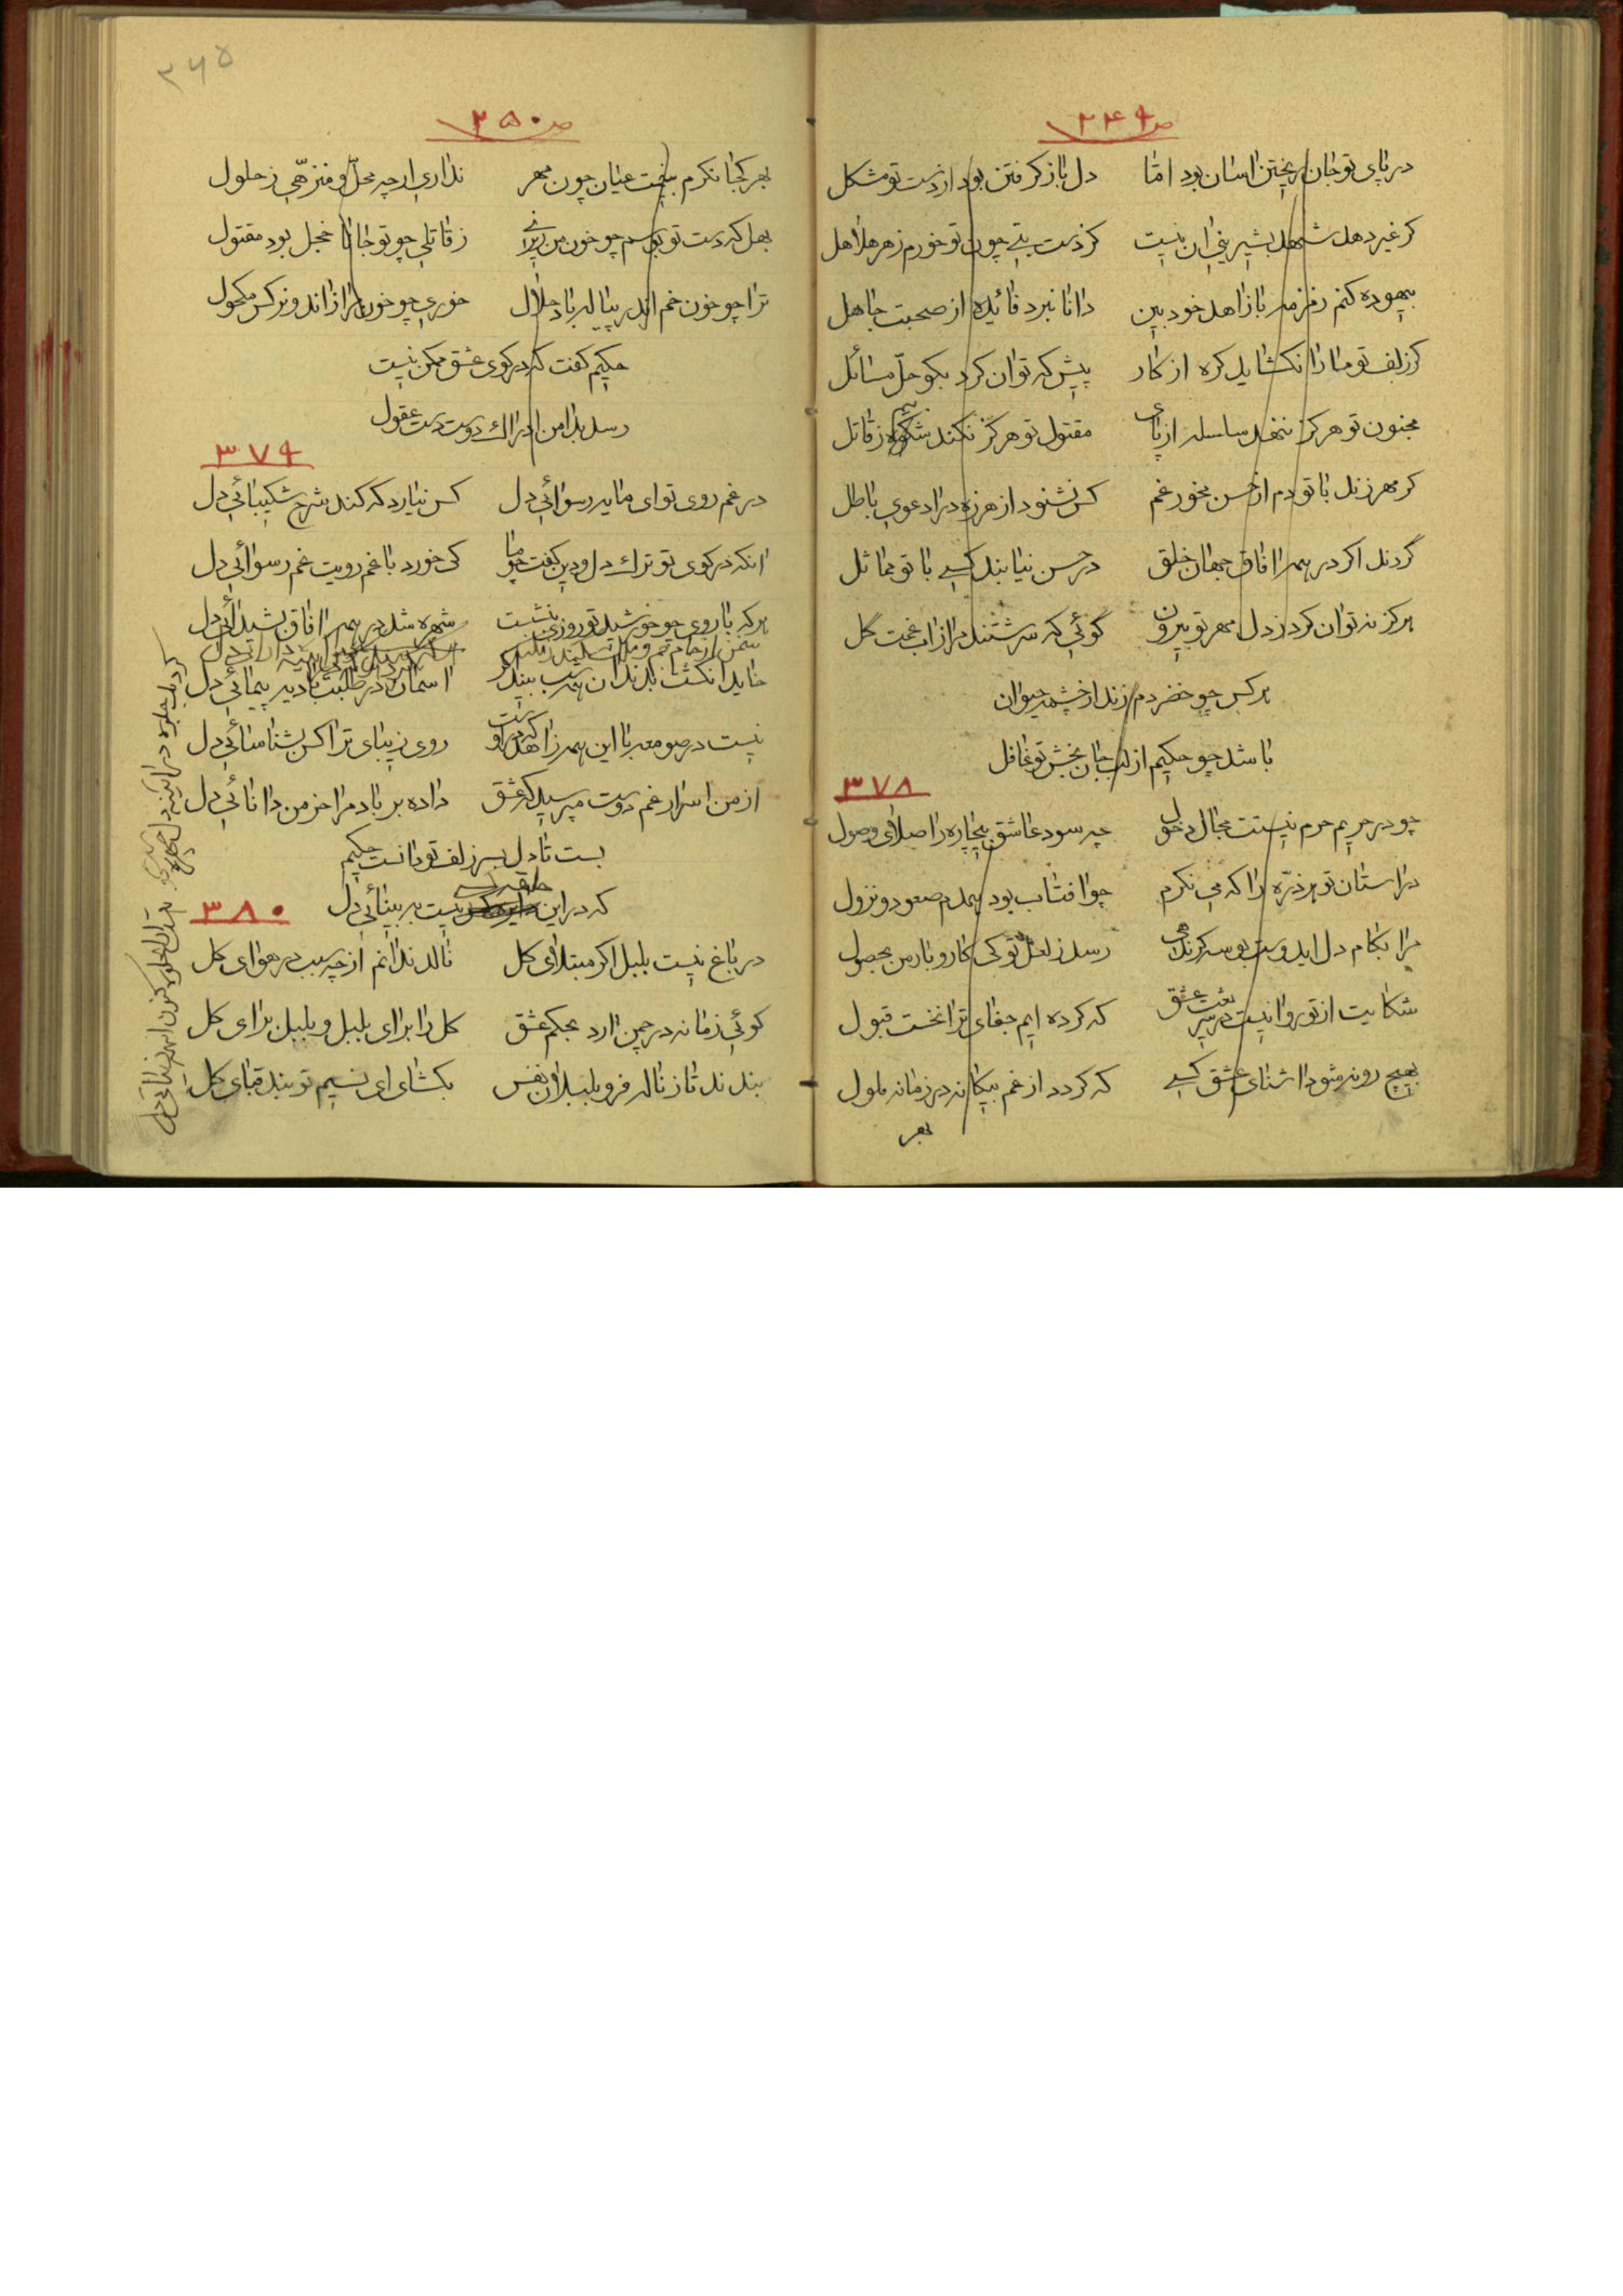 ص ۳۴۹
در پای تو جان ریختن اسان بود اما دل باز کرفتن بود از دست تو مشکل
کر غیر دهد شهد بشیرینی ان نیست کز دست بتی چون تو خورم زهر هلاهل
بیهوده کنم زمزمه با زاهد خود بین دانا نبرد فائده از صحبت جاهل
کر زلف تو ما را نکشاید کره از کار پیش که توان کرد بکو حل مسائل
مجنون تو هرکز ننهد سلسله از پای مقتول تو هرکز نکند شکوه ز قاتل
کر مهر زند با تو دم از حسن مخور غم کس نشنود از هرزه درا دعوی باطل
گردند اکر در همه افاق جهان خلق در حسن نیابند کسی با تو مماثل
هرکز نه توان کرد ز دل مهر تو بیرون گوئی که سرشتند مرا از اب محبت گل
هر کس چو خضر دم زند از چشمه حیوان
باشد چو حکیم از لب جان بخش تو غافل
۳۷۸
چو در حریم حرم نیستت مجال دخول چه سود عاشق بیچاره را صلای وصول
در استان تو هر ذره را که می نکرم چو افتاب بود همدم صعود و نزول
مرا بکام دل ایدوست بوسه کر ندهی رسد ز لعل تو کی کار و بار من بحصول
شکایت از تو روا نیست در شریعت عشق که کرده ایم جفای ترا نخست قبول
بهیچ رو نه شود اشنای عشق کسی که کردد از غم بیکانه در زمانه ملول
بهر
۳۶۵
ص ۳۵۰
بهر کجا نکرم بینمت عیان چون مهر نداری ار چه محل و منزهی ز حلول
بهل که دست تو بوسم چو خون من ریزی ز قاتلی چو تو جانا خجل بود مقتول
ترا چو خون خم اندر پیاله باد حلال خوری چو خون مرا زاندو نرکس مکحول
حکیم کفت که در کوی عشق ممکن نیست
رسد بدامن ادراک دوست دست عقول
۳۷۹
در غم روی تو ای مایه رسوائی دل کس نیارد که کند شرح شکیبائی دل
انکه در کوی تو ترک دل و دین کفت چو ما کی خورد با غم رویت غم رسوائی دل
هر که با روی چو خورشید تو روزی بنشست شهره شد در همه افاق بشیدائی دل
خاید انکشت بدندان همه شب بیند اکر اسمان در طلبت بادیه پیمائی دل
نیست در صومعه با این همه زاهد که در اوست روی زیبای ترا کس بشناسائی دل
از من اسرار غم دوست مپرسید که عشق داده بر باد مرا خرمن دانائی دل
بست تا دل بسر زلف تو دانست حکیم
که در این حلقه کسی نیست به بینائی دل
۳۸۰
در باغ نیست بلبل اکر مبتلای کل نالد ندانم از چه سبب در هوای کل
کوئی زمانه در چمن ارد بحکم عشق کل را برای بلبل و بلبل برای کل
بندند تا ز ناله فرو بلبلان نفس بکشای ای نسیم تو بند قبای کل